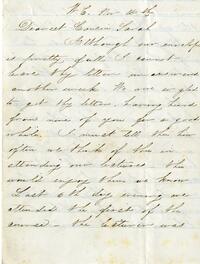 Dearest Cousin Sarah
Although our envelope
is pretty full I cannot
leave thy letter unanswered
another week. We are so glad
to get thy letter, having heard
from none of you for a good
while. I must tell thee how
often we think of thee in
attending our lectures - thee
would enjoy them we know
Last 6th day evening we
attended the first of the
course - the Lecturer was